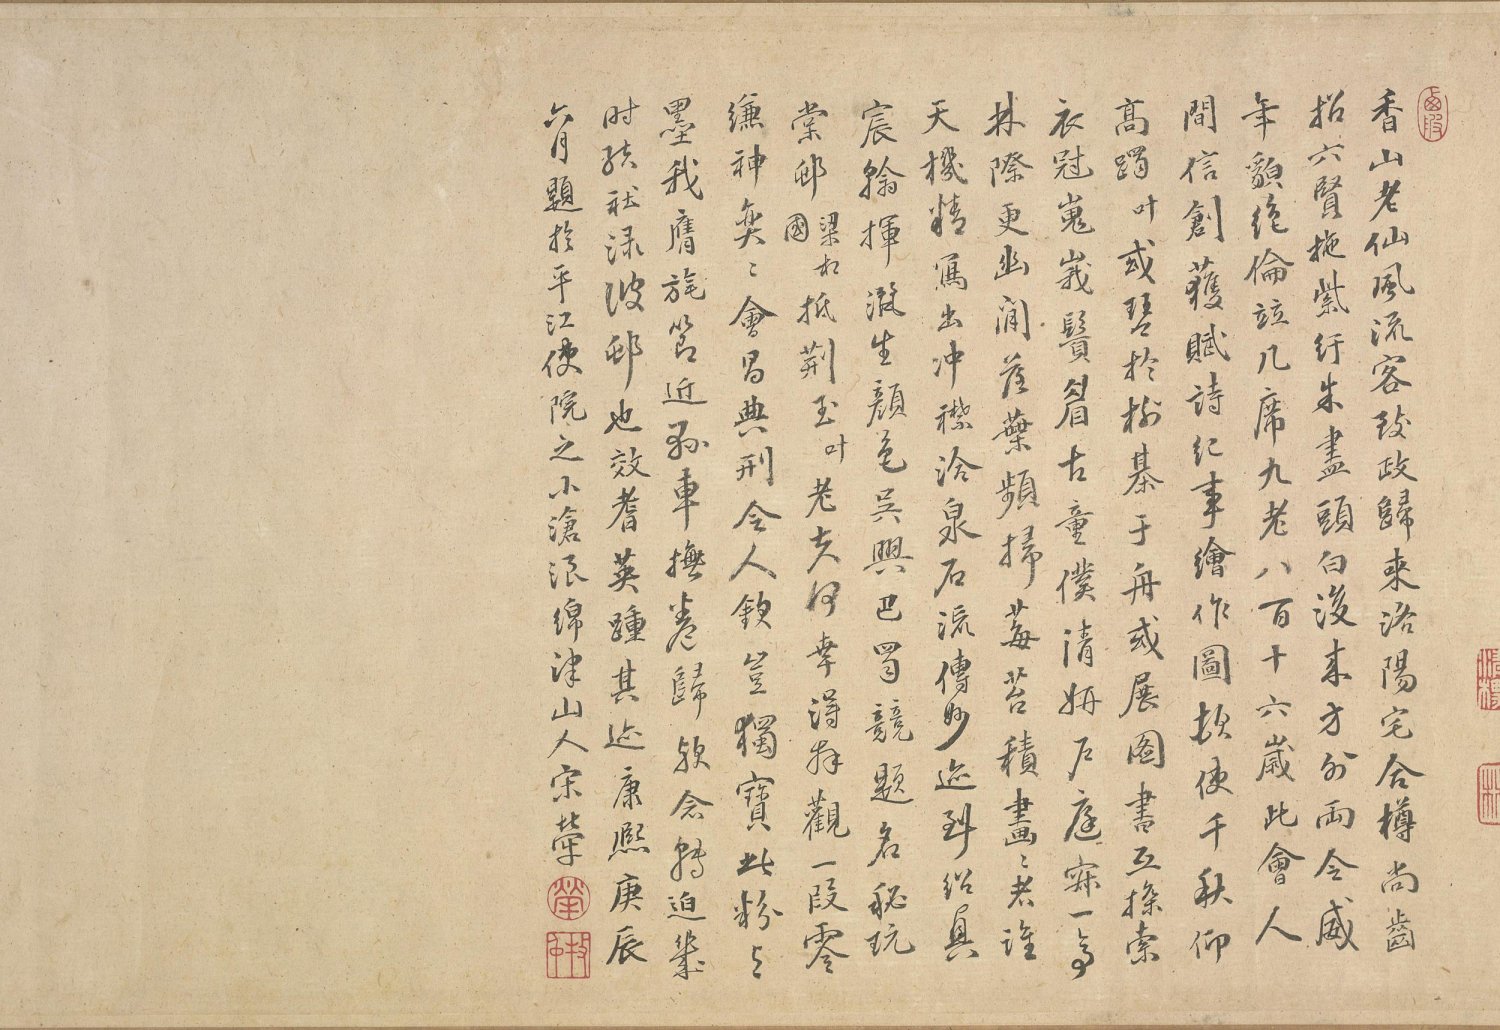 香山老仙風流客致政歸來洛陽宅合樽尚齒
招六賢拖紫紆朱盡頭白後來方外兩令威
年貌絕倫並几席九老八百十六歲此會人
間信創獲賦詩紀事繪作圖故使千秋仰
高躅叶或琴於樹棊于舟或展圖書互探索
衣冠嵬峩鬢眉古童僕清妍戶庭寂一亭
林際更幽閒落葉頻掃莓苔積畫者誰
天機精寫出冲襟冷泉石流傳妙迹到紹興
宸翰揮灑生顏色吳興巴蜀競題名秘玩
棠邨梁相國抵荆玉叶老夫何幸得拜觀一段零
縑神奕〻會昌典刑令人欽豈獨寶此粉與
墨我膺旄節近懸車撫卷歸歟念轉迫幾
時結社淥波邨也效耆英踵其迹康熙庚辰
六月題於平江使院之小滄浪綿津山人宋犖
犖